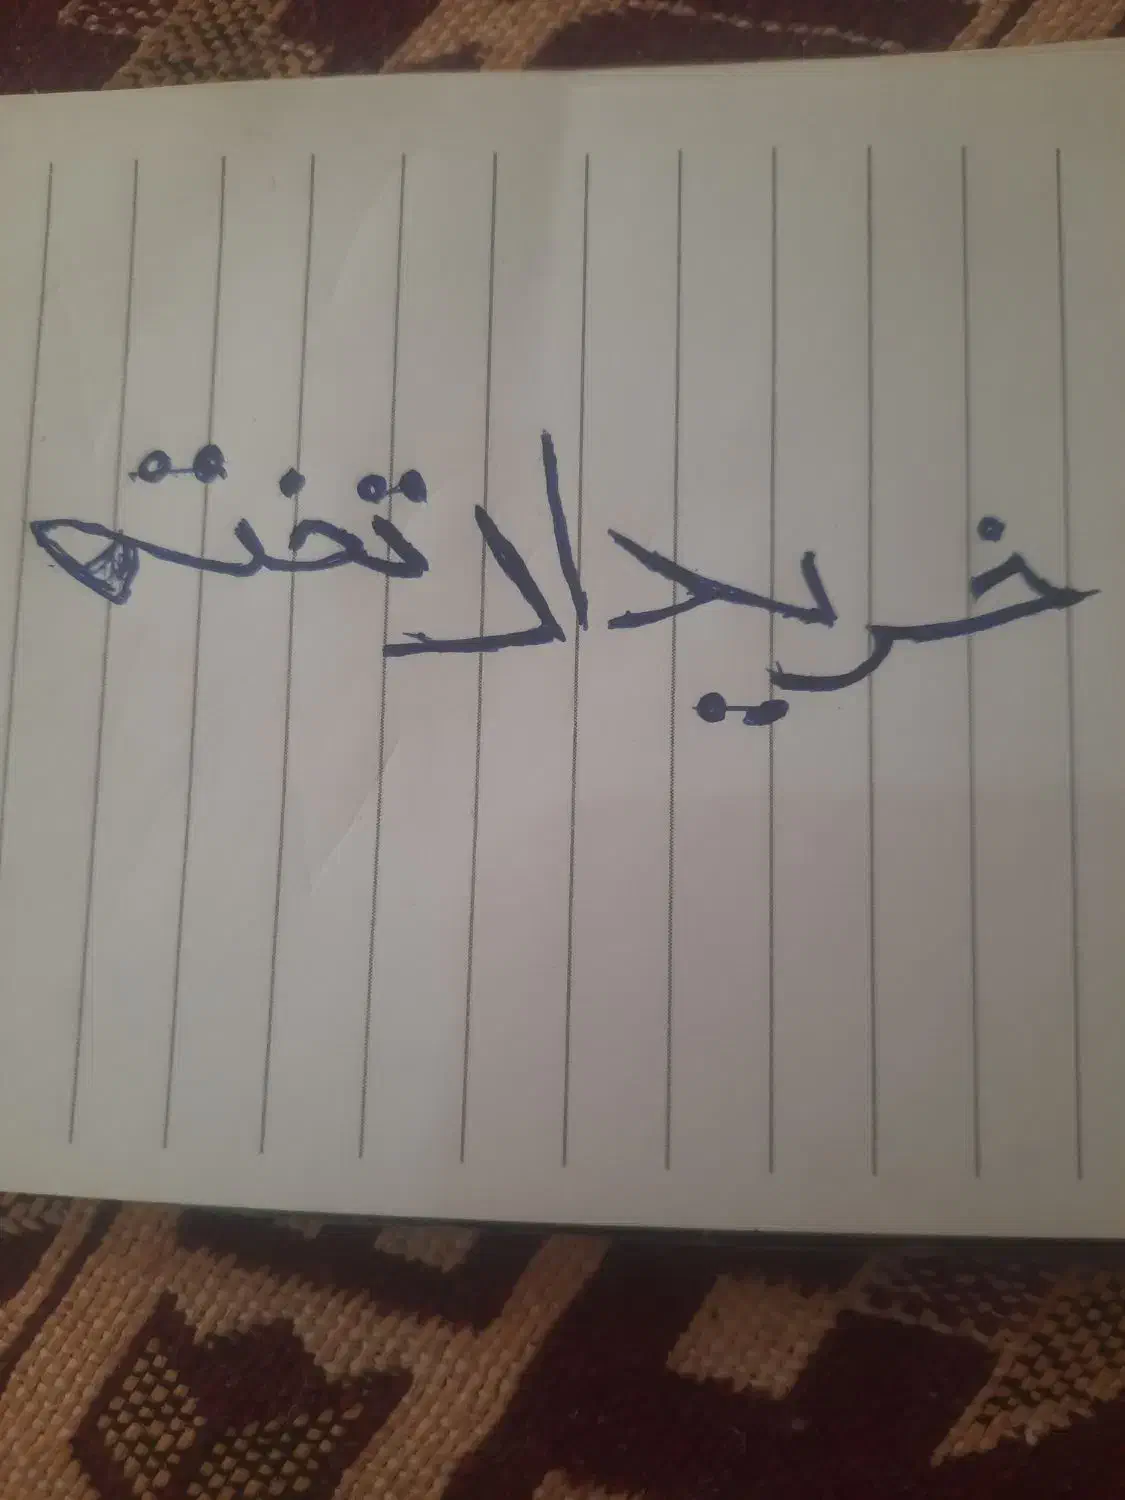 خريداد تخته